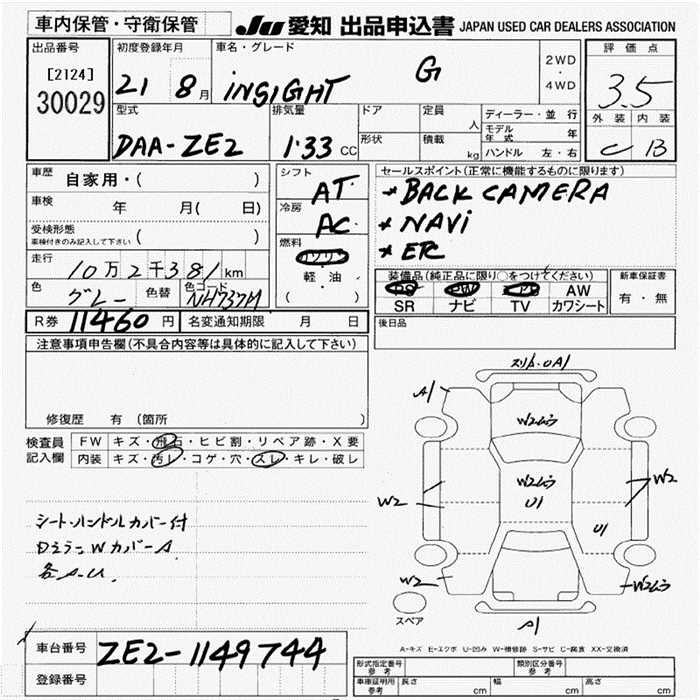 車内保管・守衛保管
JU 愛知 出品申込書 JAPAN USED CAR DEALERS ASSOCIATION
出品番号
[2124]
30029
初度登録年月
21 8月
車名・グレード
INSIGHT G
2WD
・
4WD
評価点
3.5
外装 内装
C B
型式
DAA-ZE2
排気量
1.33 CC
ドア
形状
定員
人
積載
kg
ディーラー・並行
モデル年式 年
ハンドル 左・右
車歴 自家用・( )
車検 年 月( 日)
受検形態
車検付きのみ記入して下さい ( )
走行
10万2千381km
色 グレー 色替 色コード NH737M
R券 11460 円 名変通知期限 月 日
シフト
AT
冷房
AC
燃料
ガソリン
軽・油
( )
セールスポイント(正常に機能するものに限ります)
* BACK CAMERA
* NAVi
* ETC
装備品(純正品に限り○をつけてください)
PS PW AW
SR ナビ TV カワシート
新車保証書
有・無
後日品
注意事項申告欄(不具合内容等は具体的に記入して下さい)
修復歴 有 (箇所 )
検査員
記入欄
FW キズ・飛石・ヒビ割・リペア跡・X要
内装 キズ・汚レ・コゲ・穴・スレ・キレ・破レ
シート・ハンドルカバー付
DミラーWカバーA
各A.U.
スリ傷・0A1
A1
W2ムラ
W2ムラ
U1
W2
W2
U1
W2
W2ムラ
A1
スペア
A-キズ E-エクボ U-凹み W-補修跡 S-サビ C-腐食 XX-交換済
車台番号 ZE2-1149744
登録番号
形式指定番号
参考
類別区分番号
参考
車庫証明用
参考
長さ cm 幅 cm 高さ cm